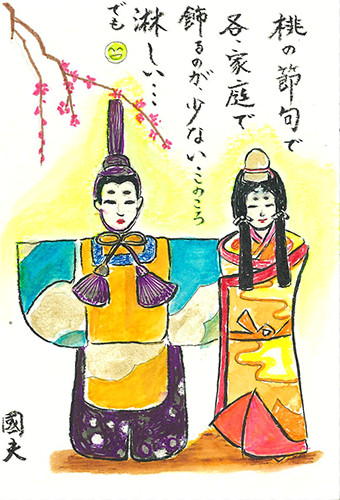 桃の節句で
各家庭で
飾るのが、少ないこのころ
淋しい…
でも
國夫